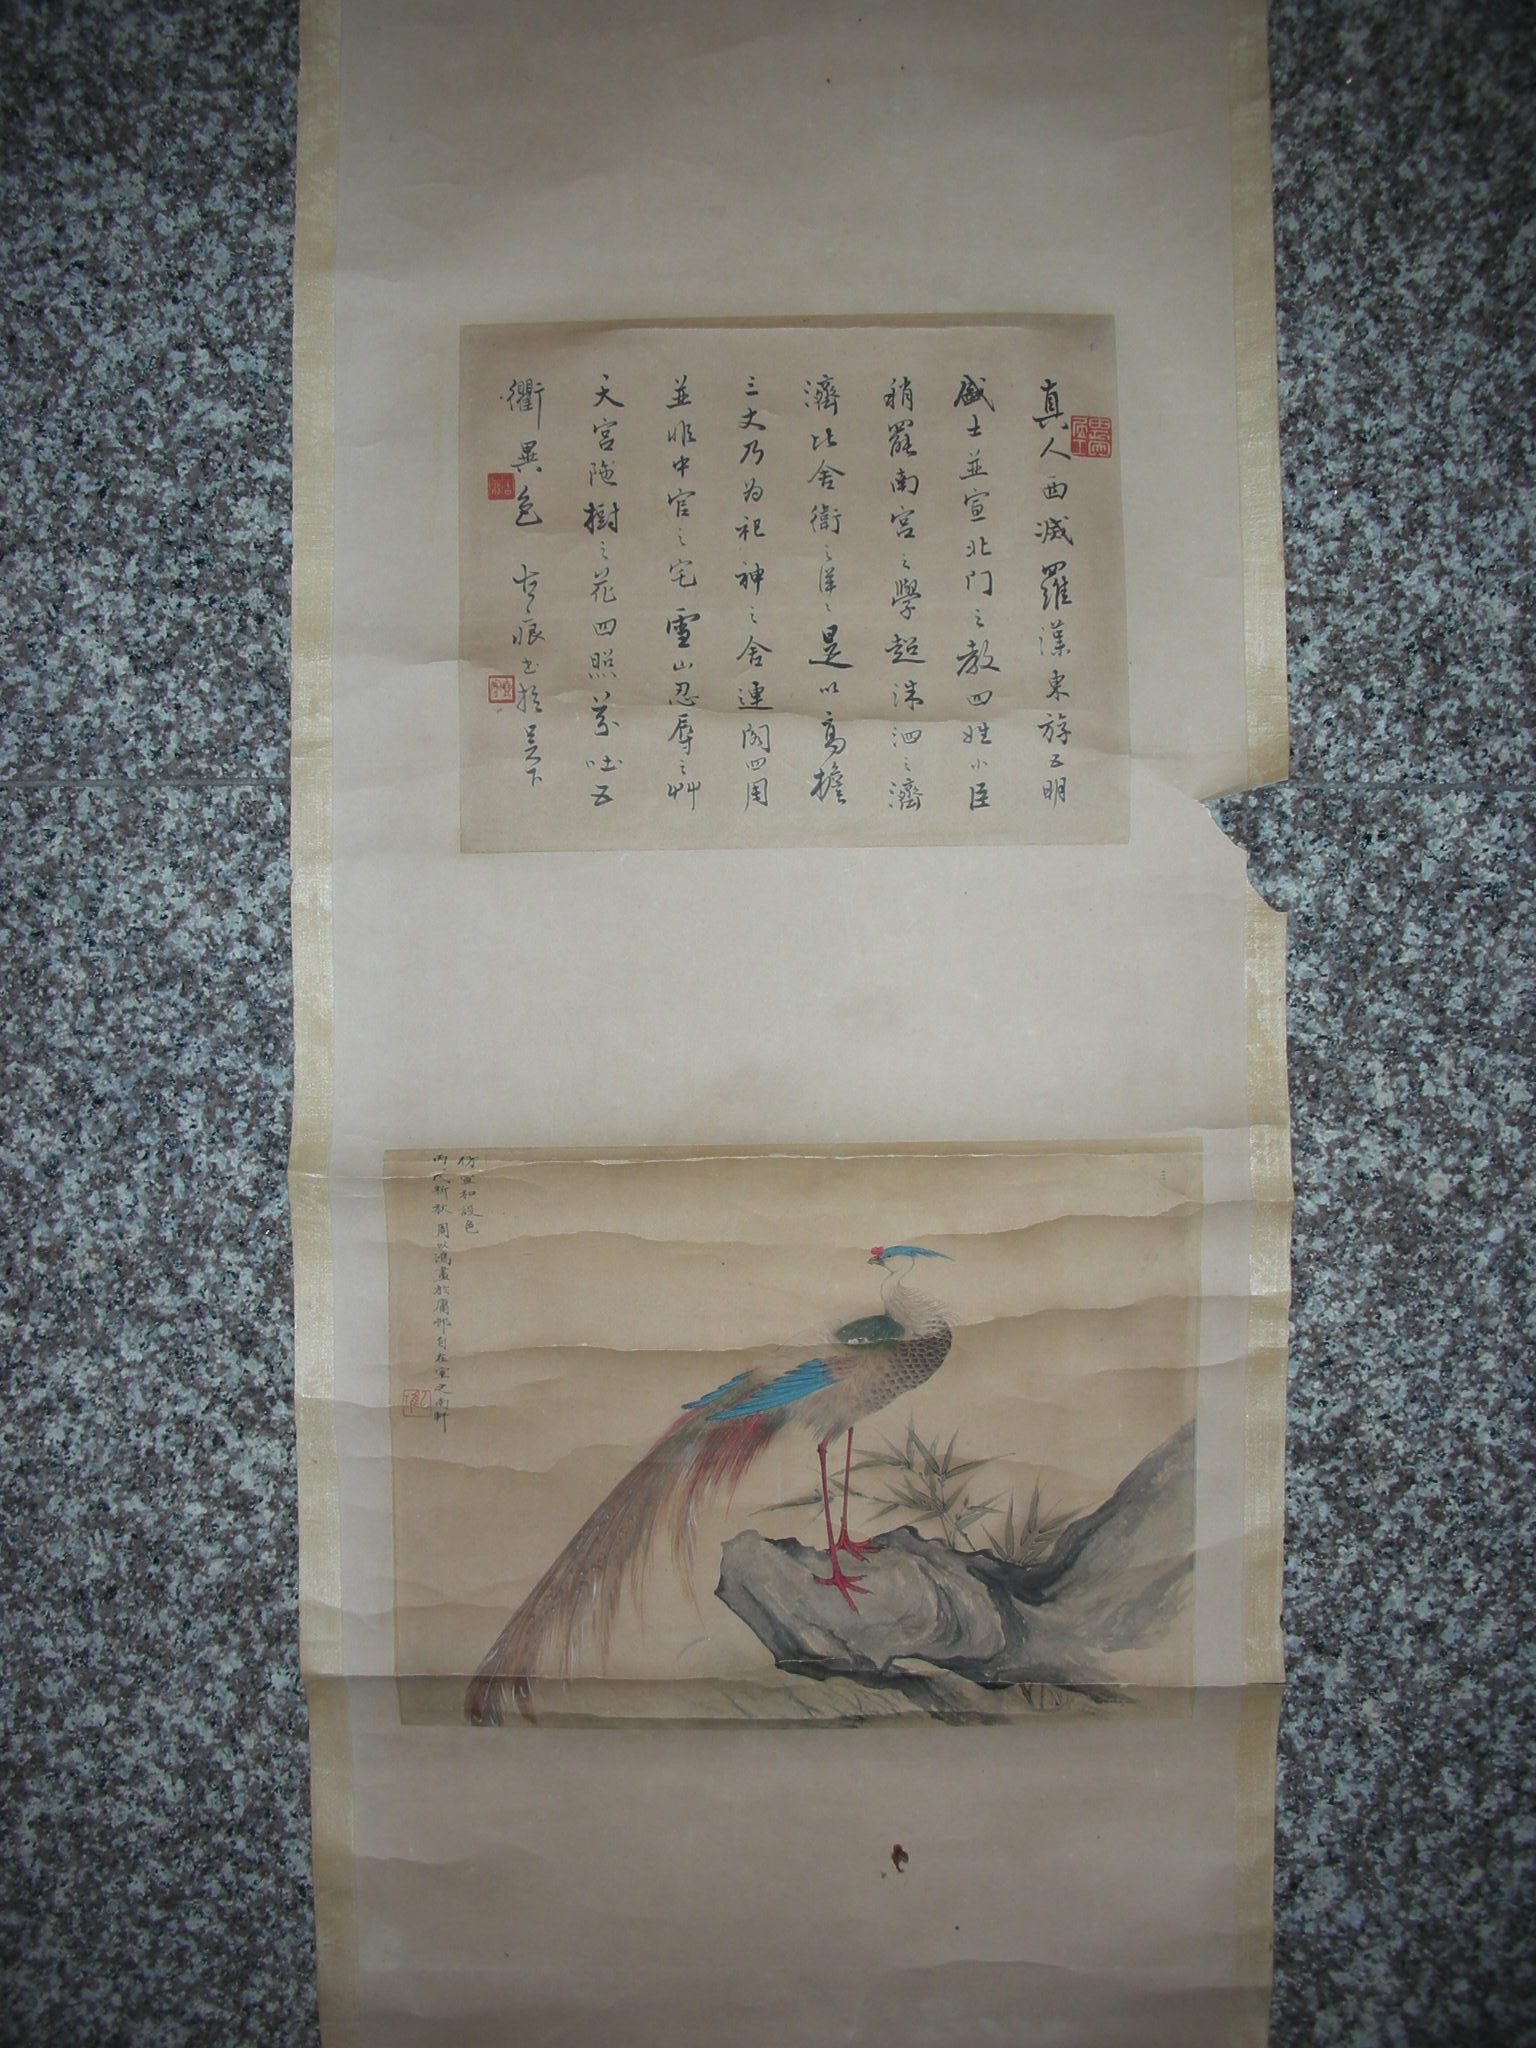 真人西滅羅漢東游五明
盛士並宣北門之教四姓小臣
稍罷南宮之學超洙泗之濟
濟比舍衛之洋々是以高擔
三丈乃为祀神之舍連閣四周
並非中官之宅雪山忍辱之艸
天宮陁樹之花四照芬吐五
衢異色 書於吳下
仿宣和設色
丙戌新秋周以鴻畫於庸邨自在室之南軒